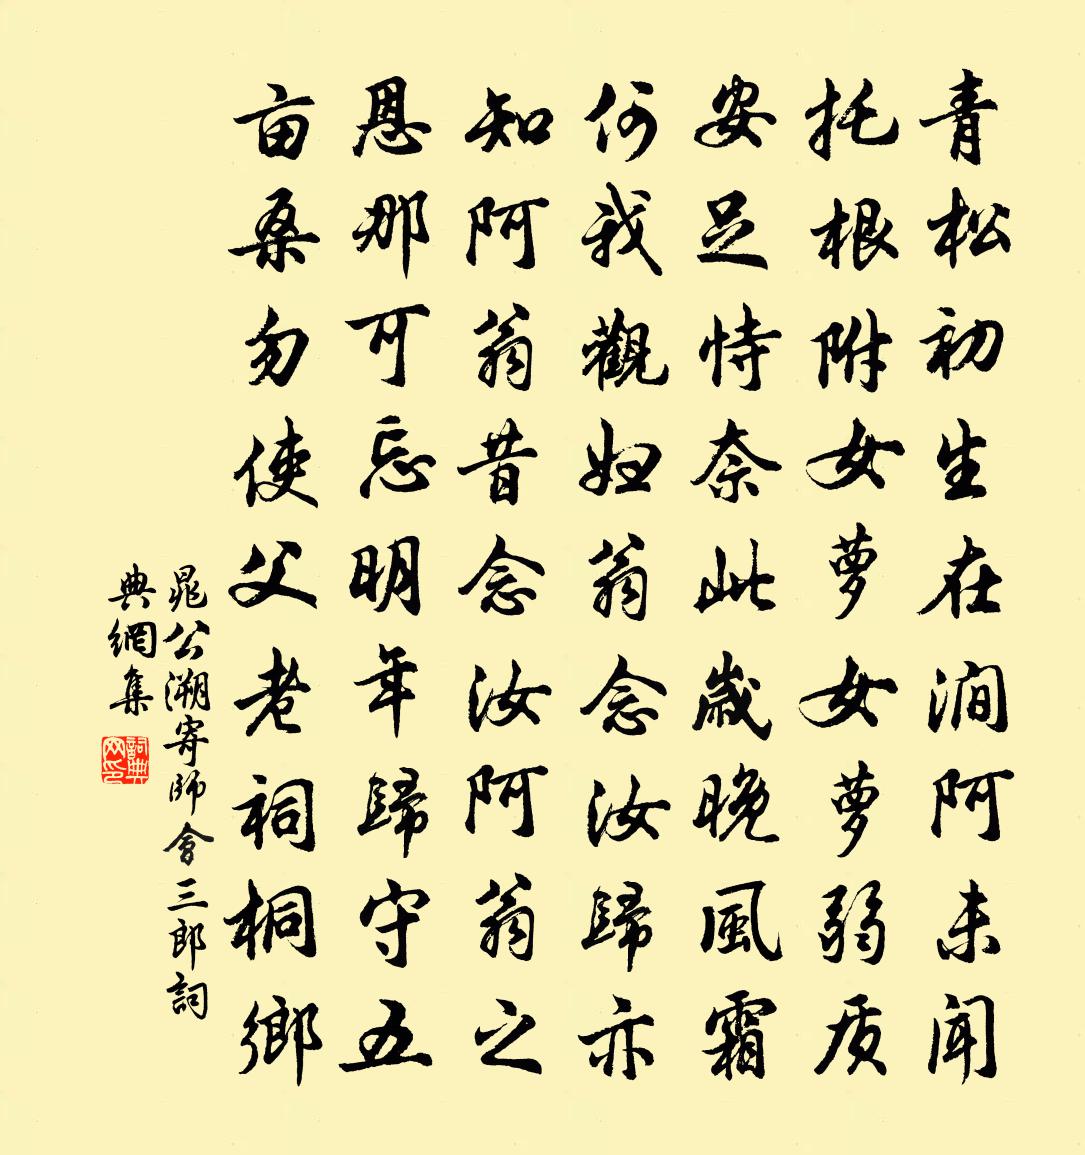 青松初生在涧阿未闻
托根附女萝女萝弱质
安足恃奈此岁晚風霜
何我觀妇翁念汝歸亦
知阿翁昔念汝阿翁之
恩那可忘明年歸守五
亩桑勿使父老祠桐鄉
晁公溯寄師會三郎詞
典網集
詞典网印